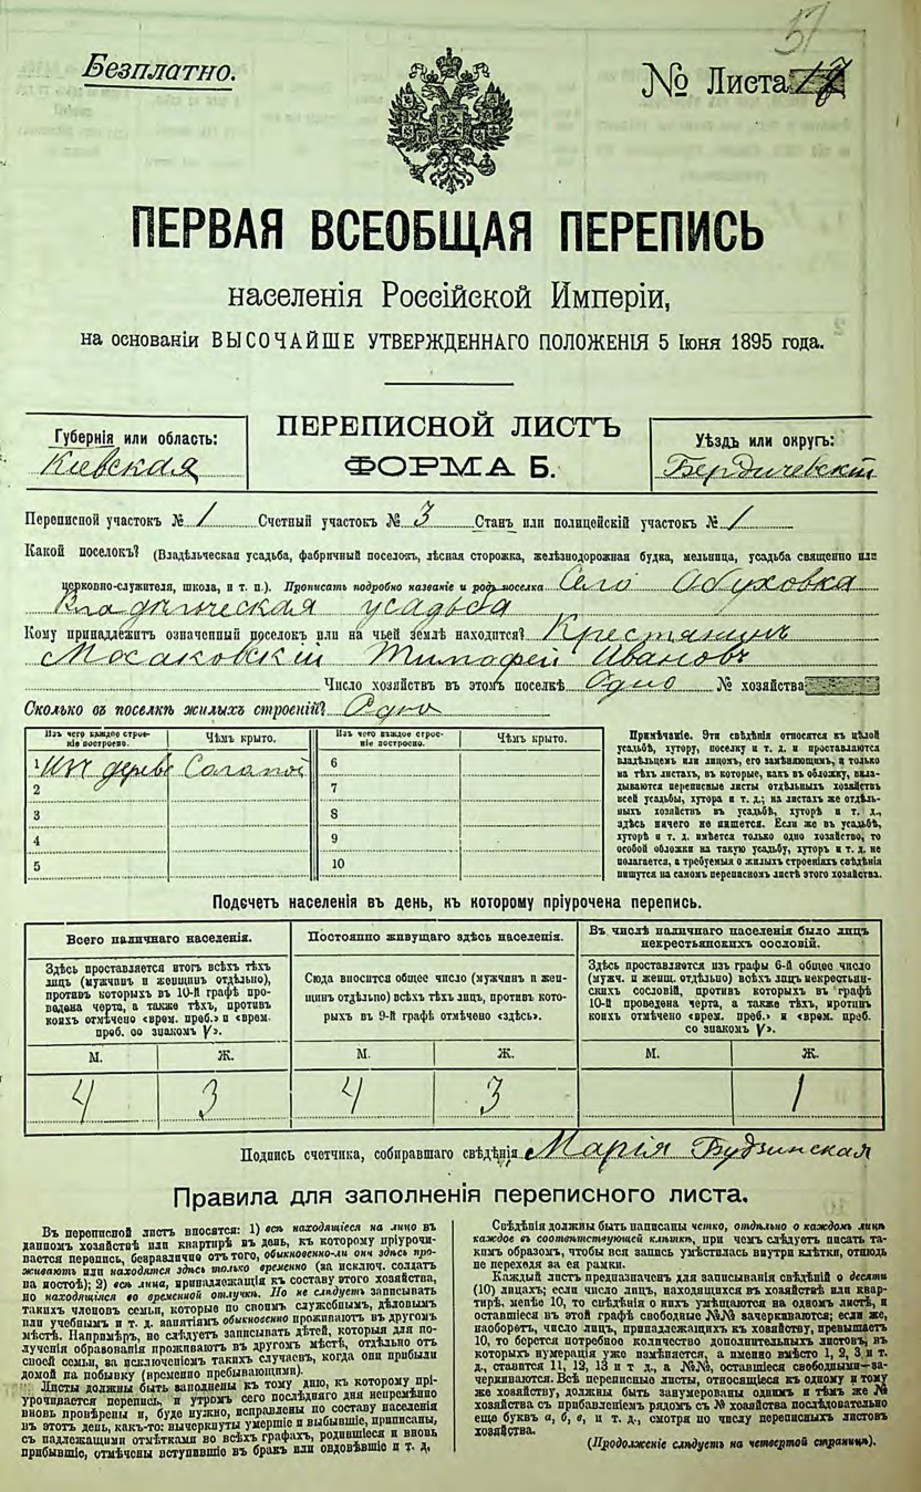 57
Безплатно.
№ Листа 17
ПЕРВАЯ ВСЕОБЩАЯ ПЕРЕПИСЬ
населенія Россійской Имперіи,
на основаніи ВЫСОЧАЙШЕ УТВЕРЖДЕННАГО ПОЛОЖЕНІЯ 5 Іюня 1895 года.
ПЕРЕПИСНОЙ ЛИСТЪ
ФОРМА Б.
Губернія или область:
Кіевская
Уѣздъ или округъ:
Бердичевскій
Переписной участокъ № 1 Счетный участокъ № 3 Станъ или полицейскій участокъ № 1
Какой поселокъ? (Владѣльческая усадьба, фабричный поселокъ, лѣсная сторожка, желѣзнодорожная будка, мельница, усадьба священно или
церковно-служителя, школа, и т. п.). Прописать подробно названіе и родъ поселка Село Обуховка
Владѣльческая усадьба
Кому принадлежитъ означенный поселокъ или на чьей землѣ находится? Крестянинъ
Мосаковскій Тимофей Ивановъ
Число хозяйствъ въ этомъ поселкѣ Одно № хозяйства
Сколько въ поселкѣ жилыхъ строеній? Одно
Изъ чего каждое строеніе построено. Чѣмъ крыто. Изъ чего каждое строеніе построено. Чѣмъ крыто.
1 Изъ дерева Соломой 6
2 7
3 8
4 9
5 10
Примѣчаніе. Эти свѣдѣнія относятся къ цѣлой
усадьбѣ, хутору, поселку и т. д. и проставляются
владѣльцемъ или лицомъ, его замѣняющимъ, и только
на тѣхъ листахъ, въ которые, какъ въ обложку, вкла-
дываются переписные листы отдѣльныхъ хозяйствъ
всей усадьбы, хутора и т. д.; на листахъ же отдѣль-
ныхъ хозяйствъ въ усадьбѣ, хуторѣ и т. д.,
здѣсь ничего не пишется. Если же въ усадьбѣ,
хуторѣ и т. д. имѣется только одно хозяйство, то
особой обложки на такую усадьбу, хуторъ и т. д. не
полагается, а требуемыя о жилыхъ строеніяхъ свѣдѣнія
пишутся на самомъ переписномъ листѣ этого хозяйства.
Подсчетъ населенія въ день, къ которому пріурочена перепись.
Всего наличнаго населенія.
Здѣсь проставляется итогъ всѣхъ тѣхъ
лицъ (мужчинъ и женщинъ отдѣльно),
противъ которыхъ въ 10-й графѣ про-
ведена черта, а также тѣхъ, противъ
коихъ отмѣчено «врем. преб.» и «врем.
преб. со знакомъ V».
М. Ж.
4 3
Постоянно живущаго здѣсь населенія.
Сюда вносится общее число (мужчинъ и жен-
щинъ отдѣльно) всѣхъ тѣхъ лицъ, противъ кото-
рыхъ въ 9-й графѣ отмѣчено «здѣсь».
М. Ж.
4 3
Въ числѣ наличнаго населенія было лицъ
некрестьянскихъ сословій.
Здѣсь проставляется изъ графы 6-й общее число
(мужч. и женщ. отдѣльно) всѣхъ лицъ некрестьян-
скихъ сословій, противъ которыхъ въ графѣ
10-й проведена черта, а также тѣхъ, противъ
коихъ отмѣчено «врем. преб.» и «врем. преб.
со знакомъ V».
М. Ж.
1
Подпись счетчика, собиравшаго свѣдѣнія Марія Будзинская
Правила для заполненія переписного листа.
Въ переписной листъ вносятся: 1) всѣ находящіеся на лицо въ
данномъ хозяйствѣ или квартирѣ въ день, къ которому пріурочи-
вается перепись, безразлично отъ того, обыкновенно-ли они здѣсь про-
живаютъ или находятся здѣсь только временно (за исключ. солдатъ
на постоѣ); 2) всѣ лица, принадлежащія къ составу этого хозяйства,
но находящіяся во временной отлучкѣ. Но не слѣдуетъ записывать
такихъ членовъ семьи, которые по своимъ служебнымъ, дѣловымъ
или учебнымъ и т. д. занятіямъ обыкновенно проживаютъ въ другомъ
мѣстѣ. Напримѣръ, не слѣдуетъ записывать дѣтей, которыя для по-
лученія образованія проживаютъ въ другомъ мѣстѣ, отдѣльно отъ
своей семьи, за исключеніемъ такихъ случаевъ, когда они прибыли
домой на побывку (временно пребывающими).
Листы должны быть заполнены къ тому дню, къ которому прі-
урочивается перепись, и утромъ сего послѣдняго дня непремѣнно
вновь провѣрены и, буде нужно, исправлены по составу населенія
въ этотъ день, какъ-то: вычеркнуты умершіе и выбывшіе, приписаны,
съ надлежащими отмѣтками во всѣхъ графахъ, родившіеся и вновь
прибывшіе, отмѣчены вступившіе въ бракъ или овдовѣвшіе и т. д.
Свѣдѣнія должны быть написаны четко, отдѣльно о каждомъ лицѣ
каждое въ соотвѣтствующей клѣткѣ, при чемъ слѣдуетъ писать та-
кимъ образомъ, чтобы вся запись умѣстилась внутри клѣтки, отнюдь
не переходя за ея рамки.
Каждый листъ предназначенъ для записыванія свѣдѣній о десяти
(10) лицахъ; если число лицъ, находящихся въ хозяйствѣ или квар-
тирѣ, менѣе 10, то свѣдѣнія о нихъ умѣщаются на одномъ листѣ, и
оставшіеся въ этой графѣ свободные №№ зачеркиваются; если же,
наоборотъ, число лицъ, принадлежащихъ къ хозяйству, превышаетъ
10, то берется потребное количество дополнительныхъ листовъ, въ
которыхъ нумерація уже измѣняется, а именно вмѣсто 1, 2, 3 и т.
д., ставится 11, 12, 13 и т. д., а №№, оставшіеся свободными—за-
черкиваются. Всѣ переписные листы, относящіеся къ одному и тому
же хозяйству, должны быть занумерованы однимъ и тѣмъ же №
хозяйства съ прибавленіемъ рядомъ съ № хозяйства послѣдовательно
еще буквъ а, б, в, и т. д., смотря по числу переписныхъ листовъ
хозяйства.
(Продолженіе слѣдуетъ на четвертой страницѣ).